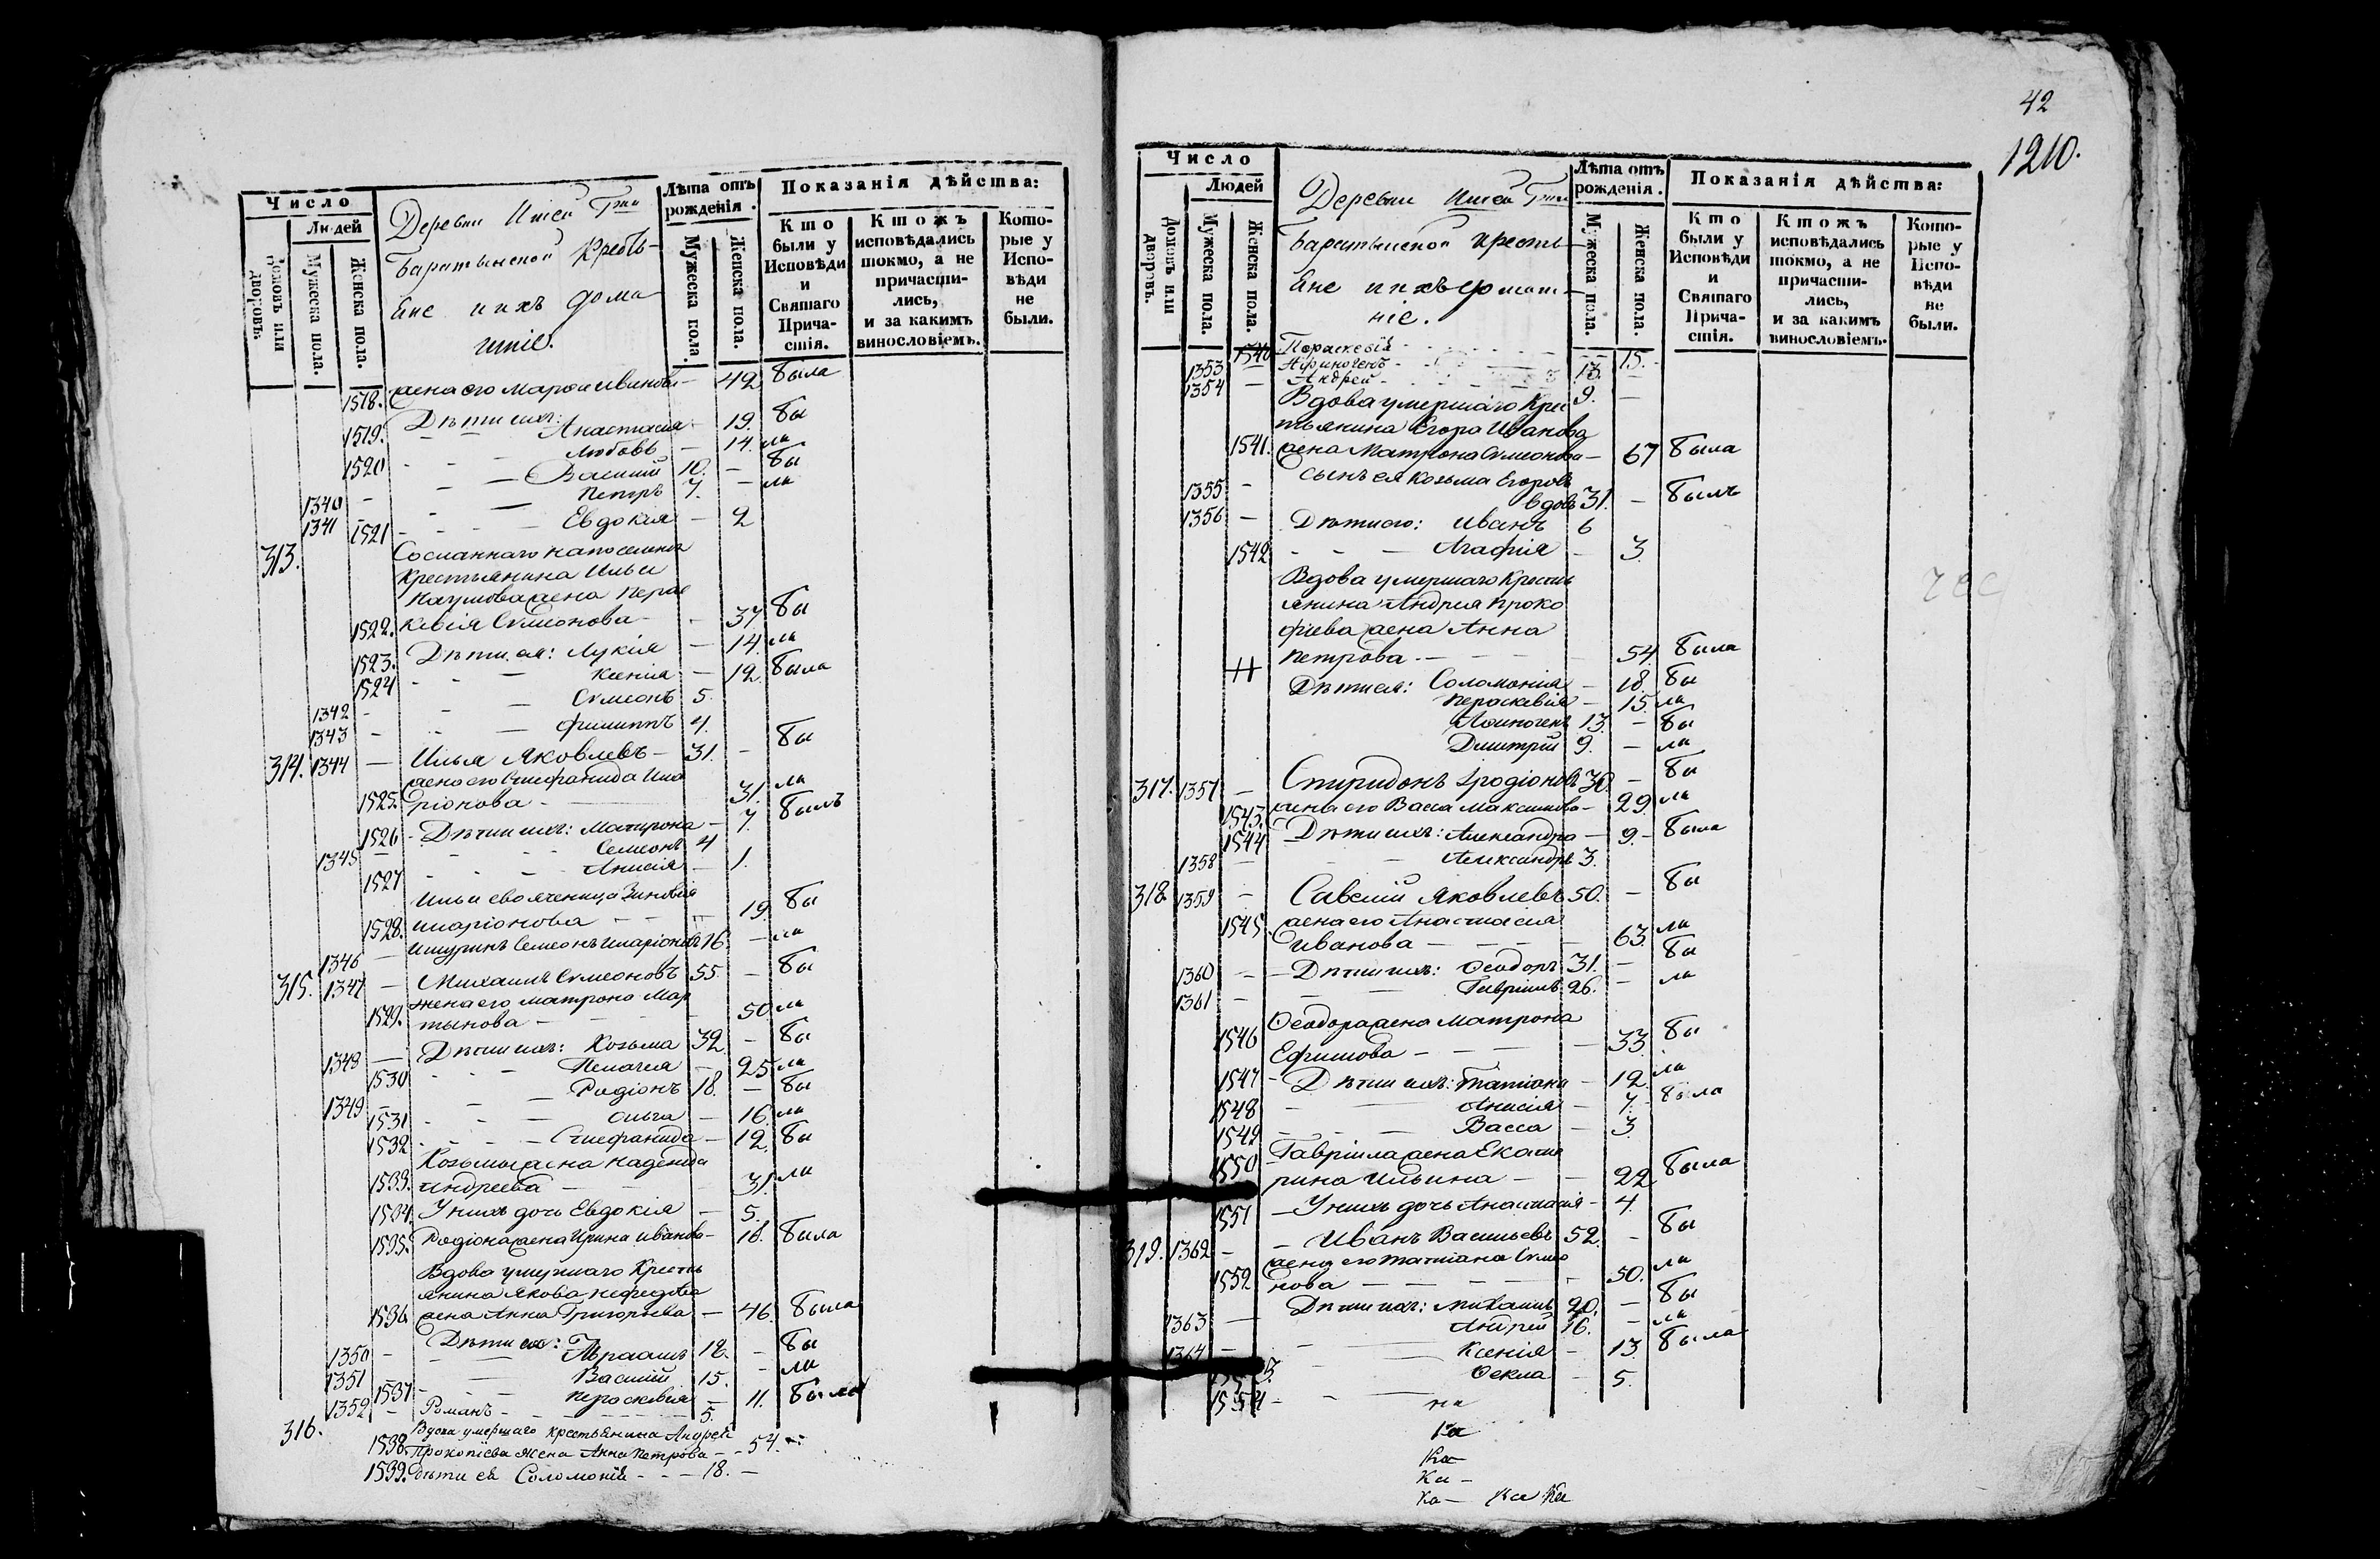 42
1210.
Число
Людей
Домовъ или дворовъ.
Мужеска пола.
Женска пола.
Деревни
Баратынской Кресть-
яне и ихъ дома-
шніе.
Лѣта отъ рожденія.
Мужеска пола.
Женска пола.
Показанія дѣйства:
Кто были у Исповѣди и Святаго Прича-стія.
Ктожъ исповѣдались токмо, а не причасти-лись, и за какимъ винословіемъ.
Кото-рые у Испо-вѣди не были.
1518. жена его Марѳа Иванова — 42 была
Дѣти ихъ:
1519. Анастасія — 19. бы
1520 Любовь — 14. ла
1340 — Василій 10. — бы
1341 Петръ 7. — ла
1521 Евдокія — 2
313. Сосланнаго на поселеніе
Крестьянина Ильи
Наумова жена Парас
1522. кевія Симеонова — 37 бы
1523. Дѣти ея: Лукія — 14. ла
1524 Ксенія — 12. была
1342 — Симеонъ 5.
1343 — Филиппъ 4.
314. 1344 — Илья Яковлевъ — 31. — бы
жена его Стефанида Ила
1525. ріонова — 31. ла
1526 Дѣти ихъ: Матрона — 7. былъ
1345 — Семеонъ 4
1527 Анисія — 1.
Ильи свояченица Зиновія
1528. Иларіонова — 19 бы
1346 — Шуринъ Семеонъ Иларіоновъ 16. — ла
315. 1347 — Михаилъ Симеоновъ 55. — бы
жена его Матрона Мар
1529. тынова — 50. ла
1348 — Дѣти ихъ: Козьма 32. — бы
1530 Пелагея — 25 ла
1349 — Родіонъ 18. — бы
1531 Ольга — 16. ла
1532 Стефанида — 12. бы
Козьмы жена Надежда
1533. Андреева — 31. ла
1534. У нихъ дочь Евдокія — 5.
1535. Родіона жена Ирина Иванова — 18. была
Вдова умершаго Кресть
янина Якова Нефедова
1536 жена Анна Григорьева — 46. была
Дѣти ея:
1350 — Авраамъ 18. — бы
1351 Василій 15. — ла
1537 Параскевія — 11. была
1352 — Романъ — 5.
316. Вдова умершаго крестьянина Андрея
1538. Прокопіева жена Анна Петрова — 54.
1539. Дѣти ея Соломонія — 18. —
Число
Людей
Домовъ или дворовъ.
Мужеска пола.
Женска пола.
Деревни
Баратынской кресть-
яне и ихъ домаш-
ніе.
Лѣта отъ рожденія.
Мужеска пола.
Женска пола.
Показанія дѣйства:
Кто были у Исповѣди и Святаго Прича-стія.
Ктожъ исповѣдались токмо, а не причасти-лись, и за какимъ винословіемъ.
Кото-рые у Испо-вѣди не были.
1540 Пораскевія — 15. —
1353 — Афиногенъ — 13. —
1354 — Андрей — 9. —
Вдова умершаго Крес
тьянина Егора Иванова
1541. жена Матрона Симеонова — 67 была
1355 — Сынъ ея Козьма Егоровъ
вдовъ 31. — былъ
1356 — Дѣти его: Иванъ 6
1542 Агафія — 3.
Вдова умершаго Кресть
янина Андрея Проко
фіева жена Анна
Петрова — 54. была
Дѣти ея: Соломонія — 18. бы
Параскевія — 15. ла
Аѳиногенъ 13. — бы
Дмитрій 9. — ла
317. 1357 — Спиридонъ Іродіоновъ 30. — бы
1543. жена его Васса Максимова — 29. ла
1544 Дѣти ихъ: Александра — 9. была
1358 — Александръ 3.
318. 1359 — Савелій Яковлевъ 50. — бы
1545. жена его Анастасія
Иванова — 63. ла
1360 — Дѣти ихъ: Ѳеодоръ 31. — бы
1361 — Гавріилъ 26. — ла
Ѳеодора жена Матрона
1546 Ефимова — 33. бы
1547 Дѣти ихъ: Татіана — 12. ла
1548 Анисія — 7. была
1549 Васса — 3.
1550 Гавріила жена Екате
рина Ильина — 22 была
1551 — У нихъ дочь Анастасія — 4.
319. 1362 — Иванъ Васильевъ 52. — бы
жена его Татіана Симо
1552 нова — 50. ла
Дѣти ихъ: Михаилъ 20. — бы
1363 — Андрей 16. — ла
1364 — Ксенія — 13. была
Ѳекла — 5.
1554
на
Ка
Ка
Ка —
Ка — Ка Ка